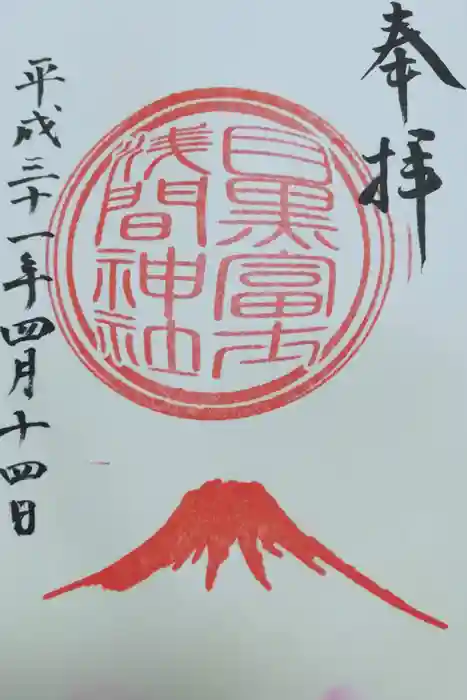 奉拝
目黒富士
浅間神社
平成三十一年四月十四日